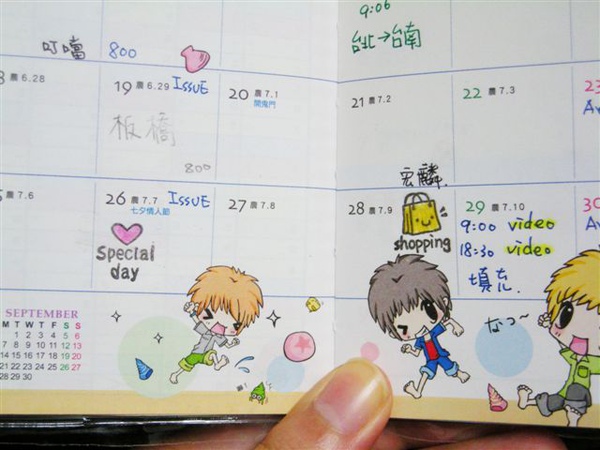 叮噹 800
9:06
台北→台南
6.28
19 農6.29 ISSUE
板橋
800
20 農7.1
開鬼門
21 農7.2
22 農7.3
23
7.6
26 農7.7 ISSUE
七夕情人節
Special
day
27 農7.8
28 農7.9
宏麟.
shopping
29 農7.10
9:00 video
18:30 video
填充
30
SEPTEMBER
M T W T F S S
1 2 3 4 5 6
7 8 9 10 11 12 13
14 15 16 17 18 19 20
21 22 23 24 25 26 27
28 29 30
なっ~